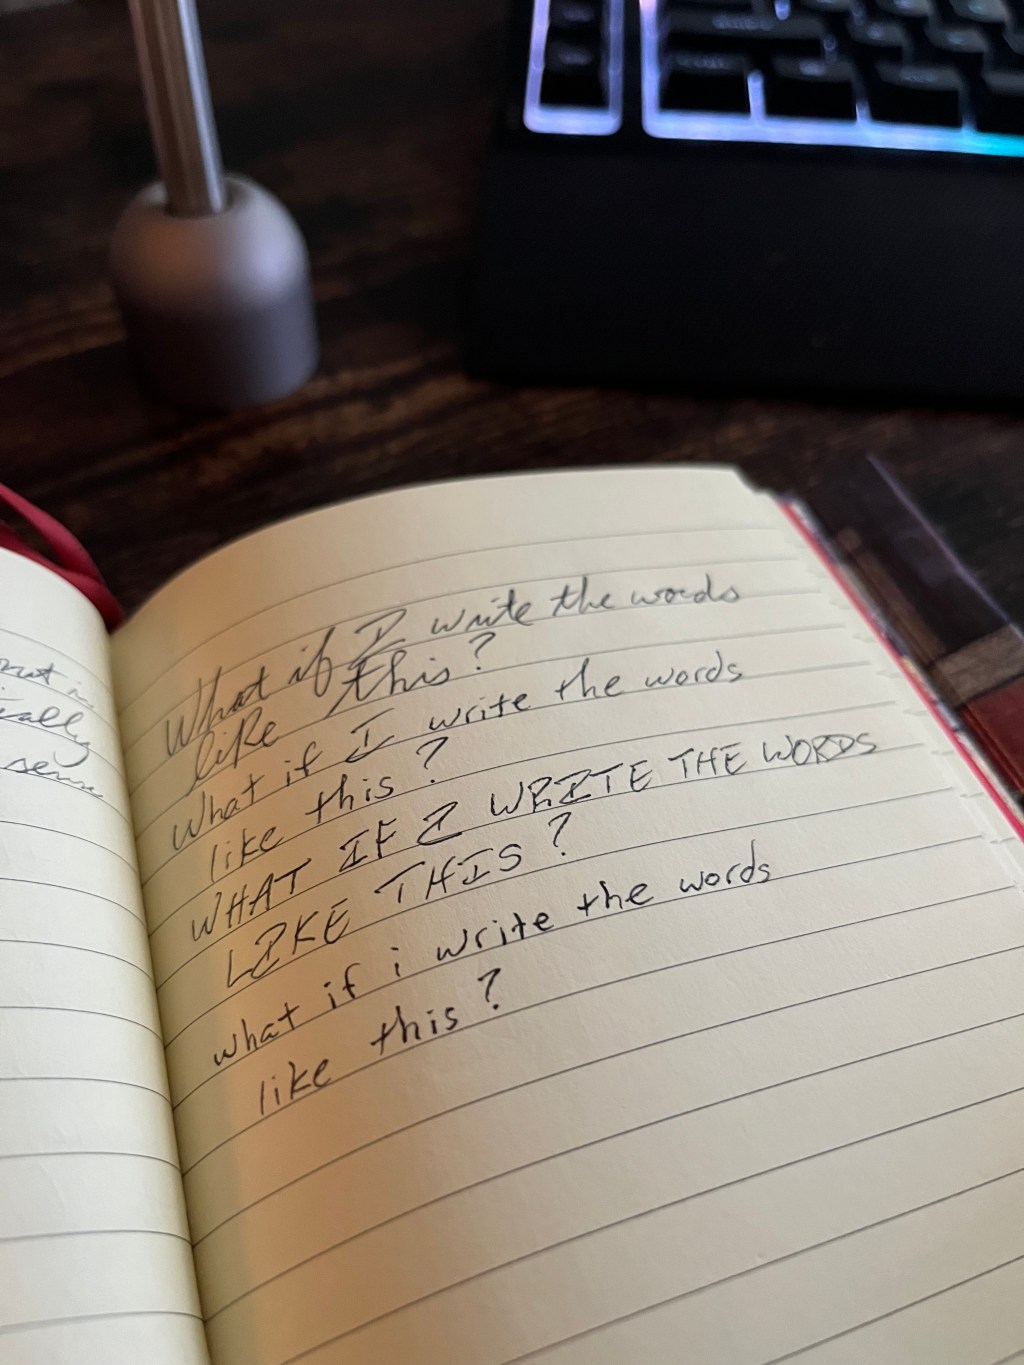 What if I write the words
like this?
What if I write the words
like this?
WHAT IF I WRITE THE WORDS
LIKE THIS?
what if i write the words
like this?